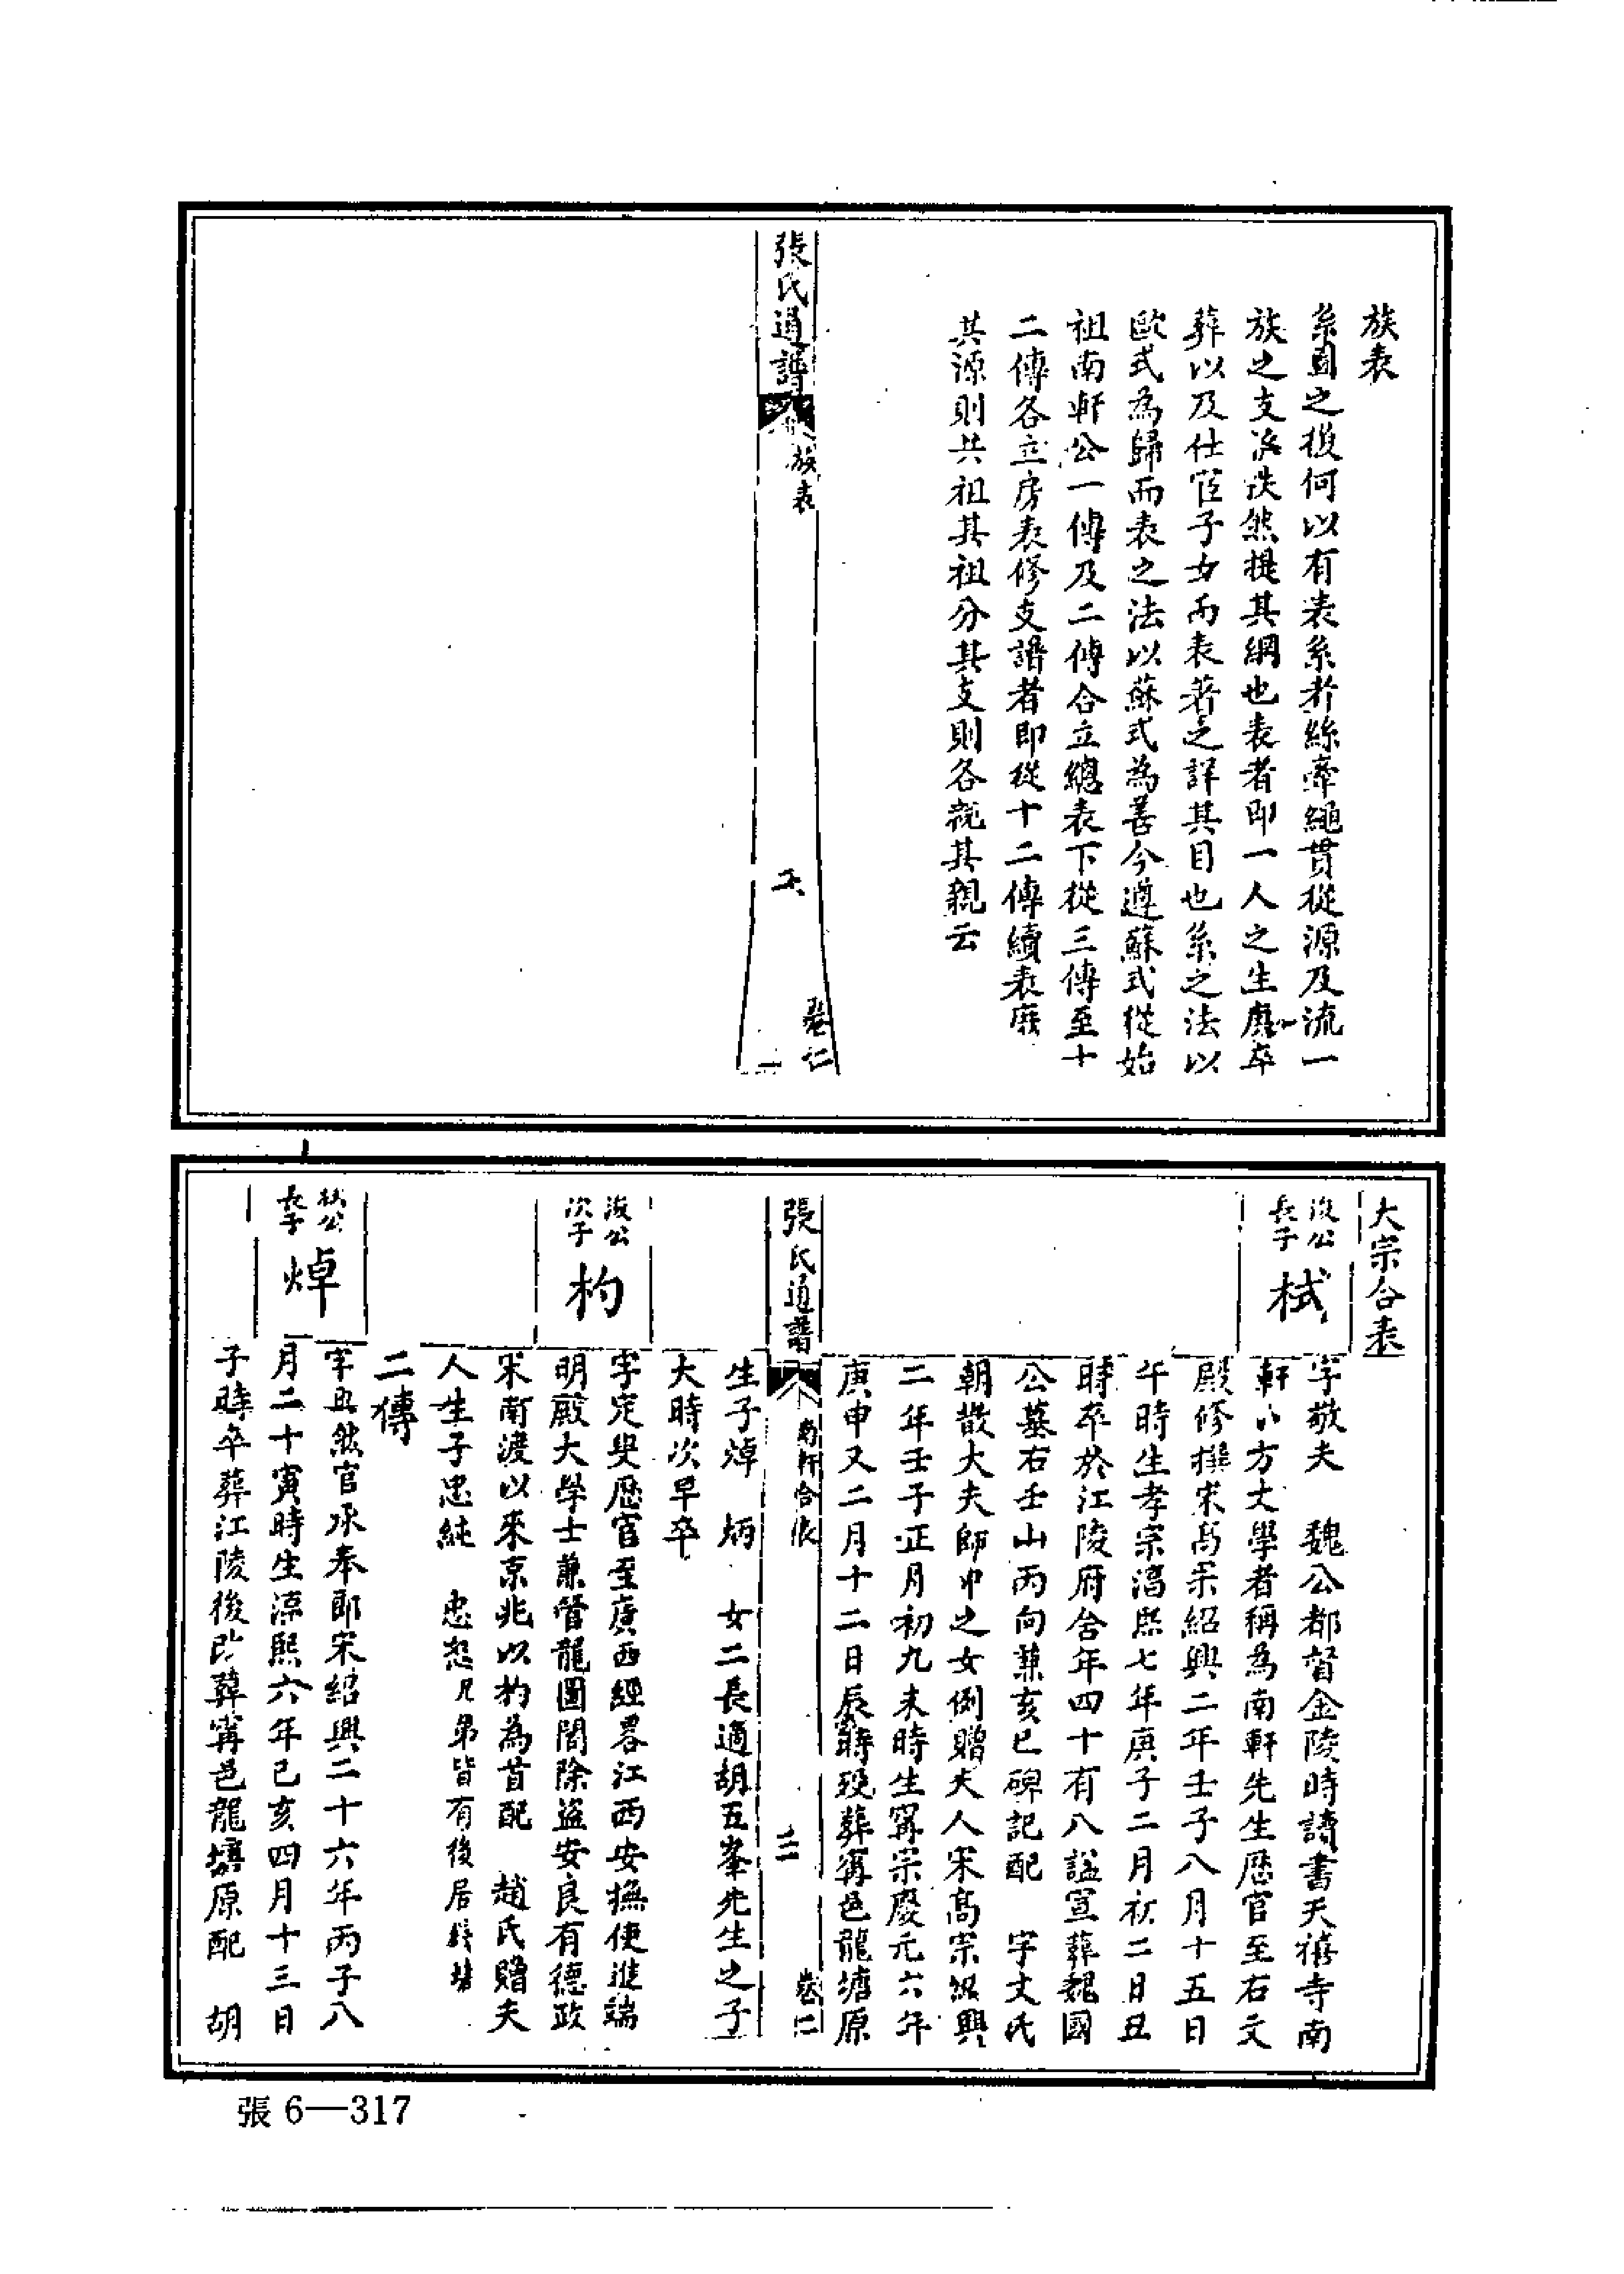 族表
系圖之後何以有表系者絲牽繩貫從源及流一
族之支派秩然提其綱也表者即一人之生歿卒
葬以及仕宦子女而表著之詳其目也系之法以
歐式為歸而表之法以蘇式為善今遵蘇式從始
祖南軒公一傳及二傳合立總表下從三傳至十
二傳各立房表修支譜者即從十二傳續表庶
其源則共祖其祖分其支則各親其親云
張氏通譜
族表
卷仁
一
大宗合表
浚公
長子
栻
字敬夫 魏公都督金陵時讀書天禧寺南
軒 方丈學者稱為南軒先生歷官至右文
殿修撰宋高宗紹興二年壬子八月十五日
午時生孝宗淳熙七年庚子二月初二日丑
時卒於江陵府舍年四十有八謚宣葬魏國
公墓右壬山丙向兼亥巳碑記配 宇文氏
朝散大夫師中之女例贈夫人宋高宗紹興
二年壬子正月初九未時生寧宗慶元六年
庚申又二月十二日辰時歿葬寧邑龍塘原
張氏通譜
南軒合表
二
卷仁
生子焯 炳 女二長適胡五峯先生之子
大時次早卒
浚公
次子
杓
字定叟歷官至廣西經畧江西安撫使進端
明殿大學士兼管龍圖閣除盜安良有德政
宋南渡以來京兆以杓為首配 趙氏贈夫
人生子忠純 忠恕兄弟皆有後居
二傳
栻公
長子
焯
字 然官承奉郎宋紹興二十六年丙子八
月二十寅時生淳熙六年己亥四月十三日
子時卒葬江陵後 葬寧邑龍塘原配 胡
張 6—317